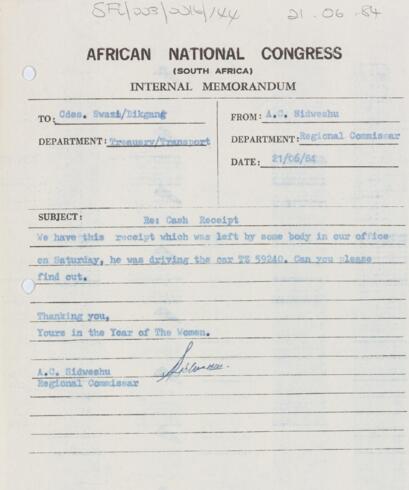 SFI/003/0016/144 21.06.84
AFRICAN NATIONAL CONGRESS
(SOUTH AFRICA)
INTERNAL MEMORANDUM
TO: Cdes. Swazi/Dikgang
FROM: A.C. Sidweshu
DEPARTMENT: Treasury/Transport
DEPARTMENT: Regional Commissar
DATE: 21/06/84
SUBJECT: Re: Cash Receipt
We have this receipt which was left by some body in our office
on Saturday, he was driving the car TZ 59240. Can you please
find out.
Thanking you,
Yours in the Year of The Women.
A.C. Sidweshu
Regional Commissar